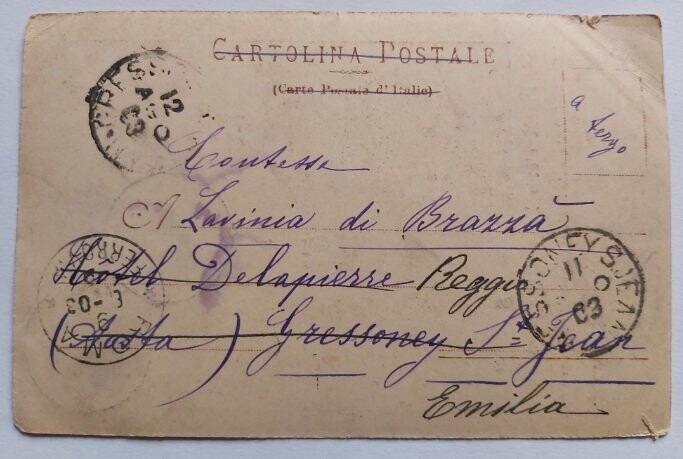 CARTOLINA POSTALE
(Carte Postale d'Italie)
a tergo
Contessa
A Lavinia di Brazzà
Hôtel Delapierre Reggio
(Aosta) Gressoney St Jean
Emilia
12
AGO
03
GRESSONEY S. JEAN
11
03
ROMA
FERROVIA
03